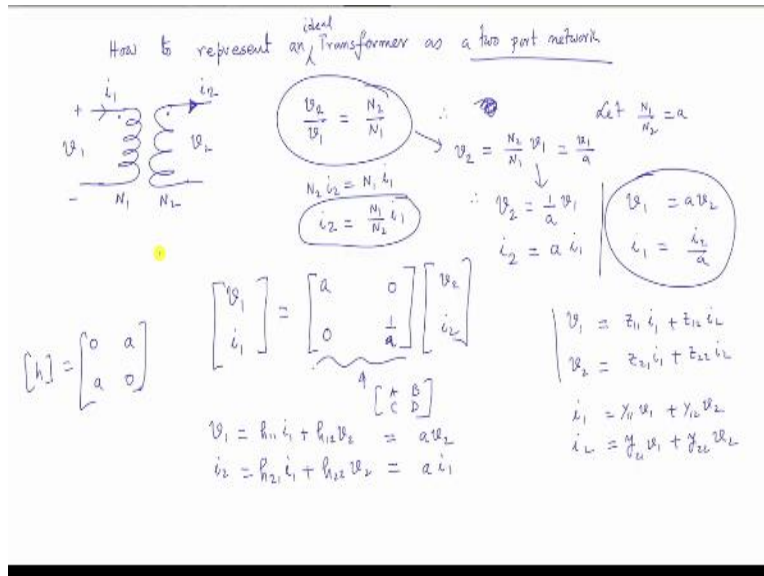 How to represent an ideal Transformer as a two port network
i₁ i₂
+ v₁ - N₁ N₂ v₂
v₂/v₁ = N₂/N₁
∴
Let N₁/N₂ = a
v₂ = N₂/N₁ v₁ = v₁/a
N₂ i₂ = N₁ i₁
i₂ = N₁/N₂ i₁
∴ v₂ = 1/a v₁
i₂ = a i₁
v₁ = a v₂
i₁ = i₂/a
[v₁ i₁] = [a 0 0 1/a] [v₂ i₂]
[A B C D]
[h] = [0 a a 0]
v₁ = h₁₁ i₁ + h₁₂ v₂ = a v₂
i₂ = h₂₁ i₁ + h₂₂ v₂ = a i₁
v₁ = z₁₁ i₁ + z₁₂ i₂
v₂ = z₂₁ i₁ + z₂₂ i₂
i₁ = y₁₁ v₁ + y₁₂ v₂
i₂ = y₂₁ v₁ + y₂₂ v₂